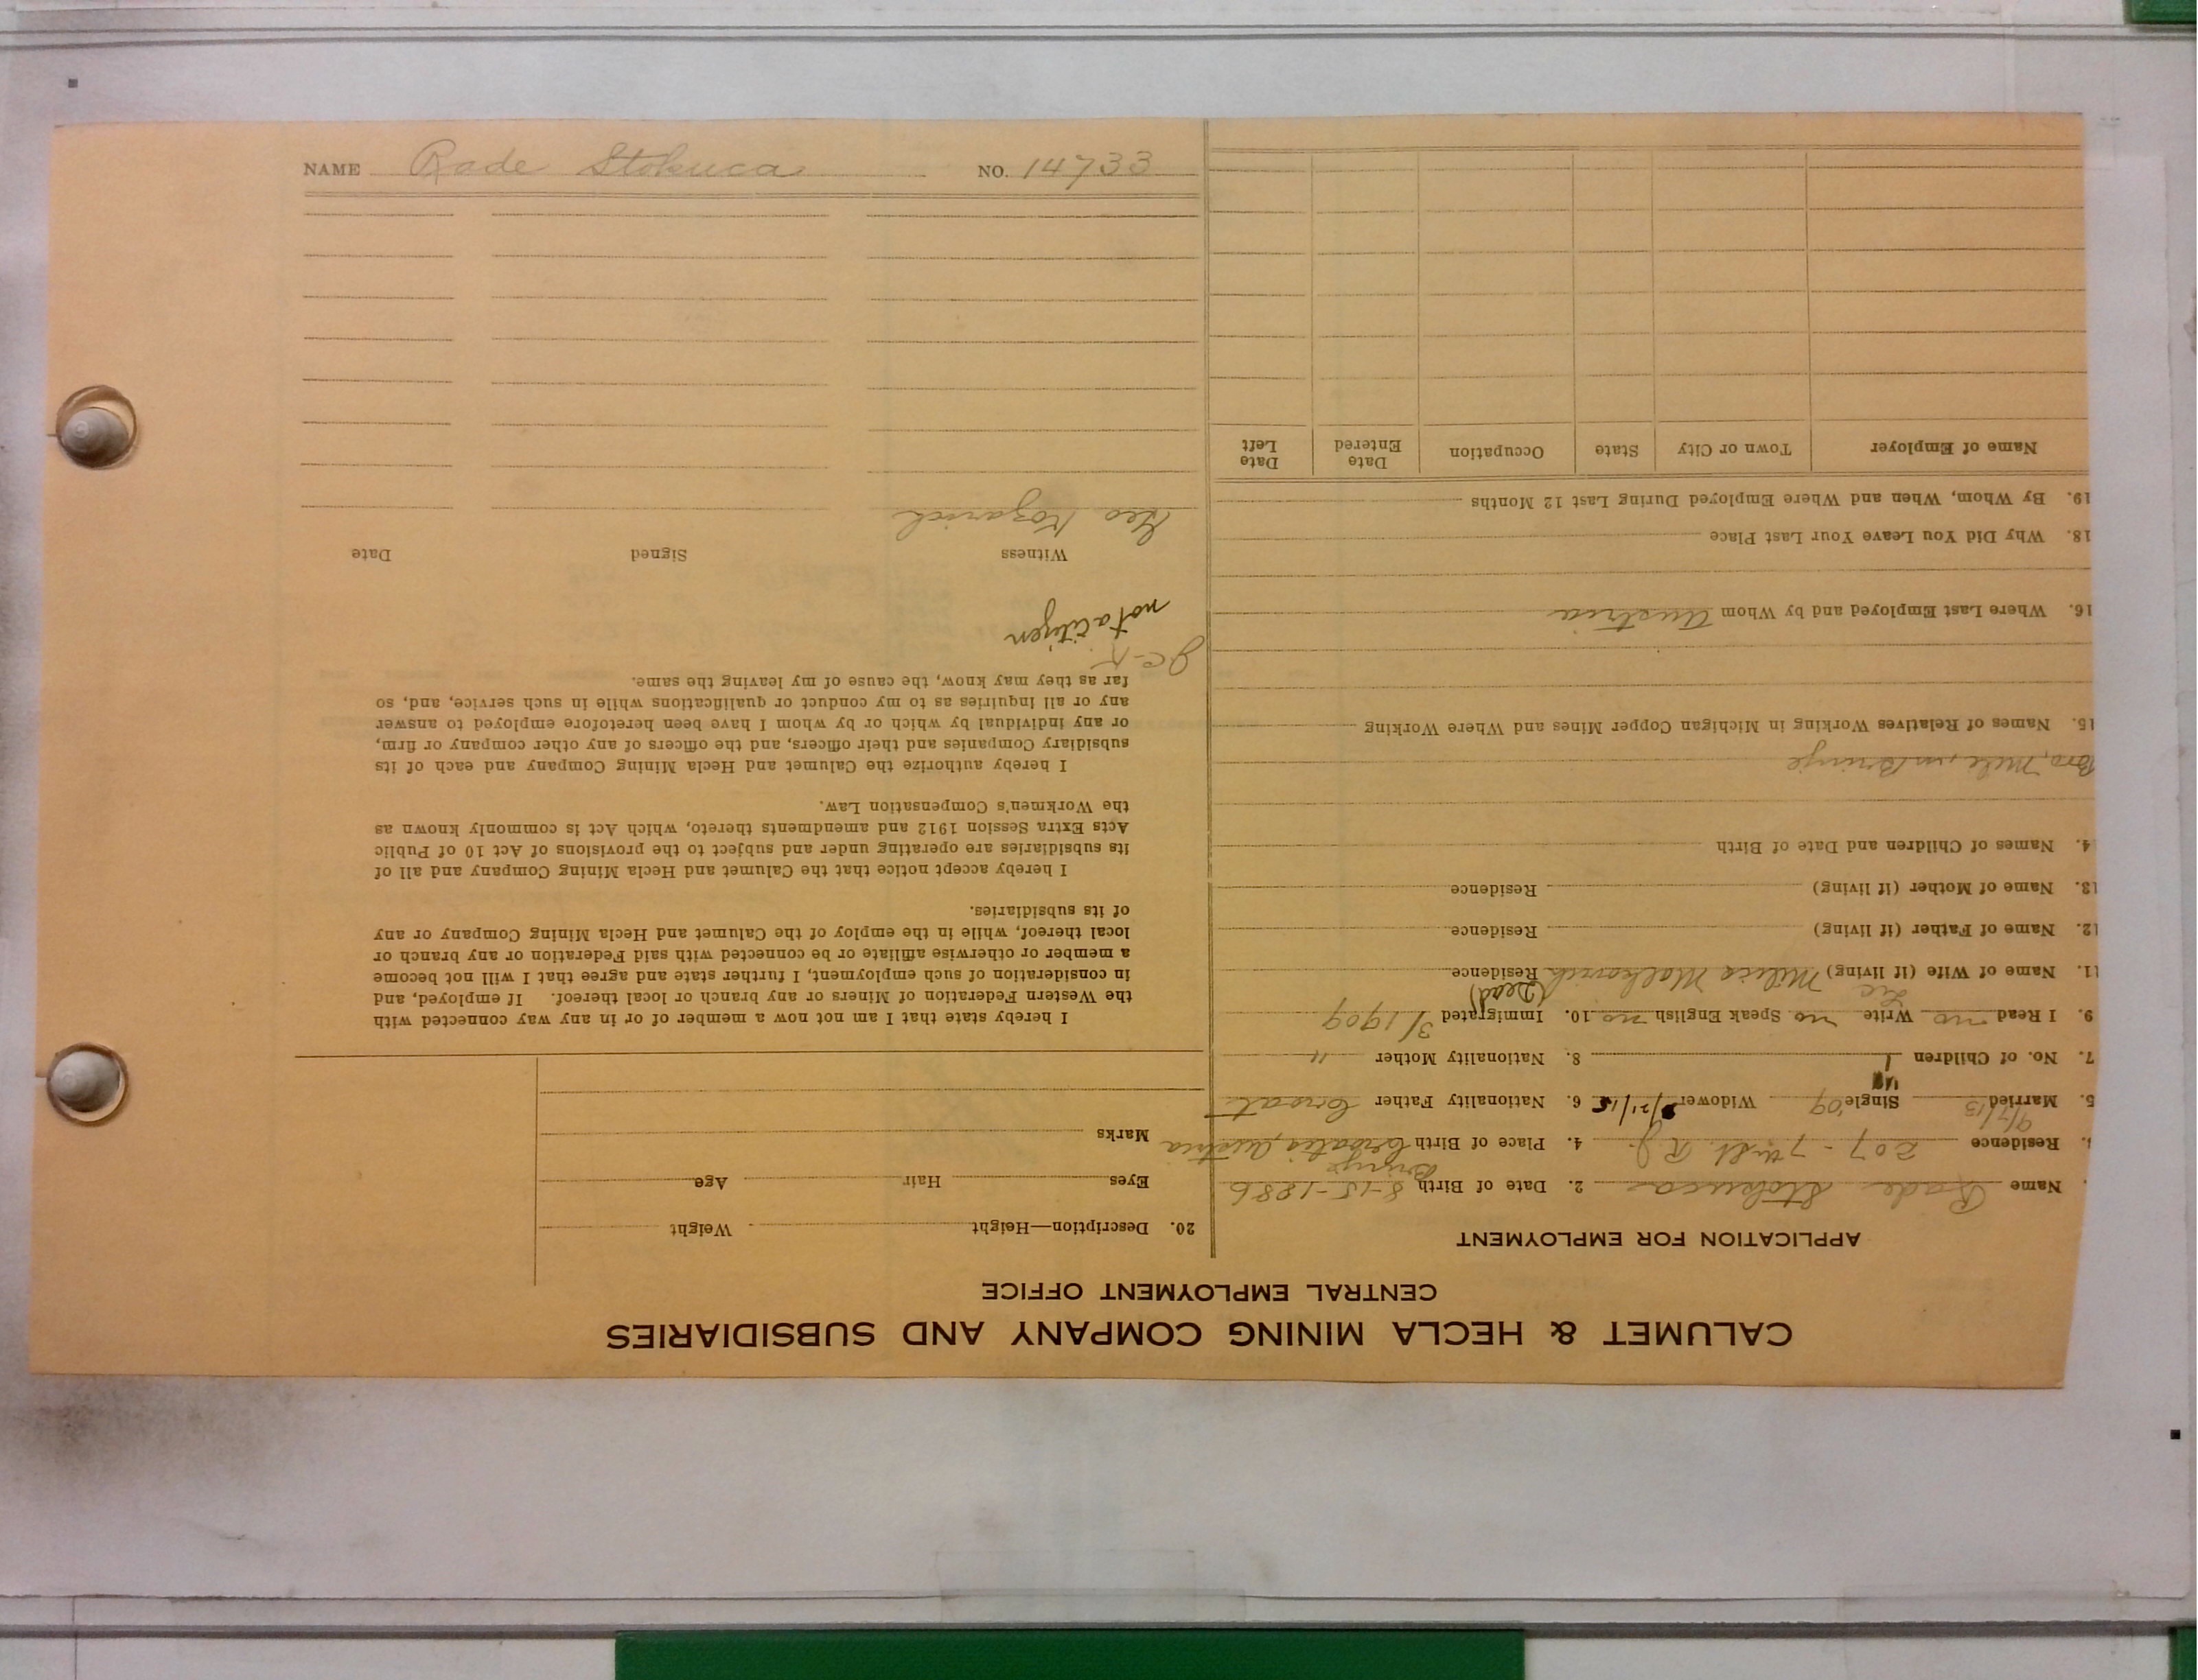 NAME Rade Stokuca NO. 14733
CALUMET & HECLA MINING COMPANY AND SUBSIDIARIES
CENTRAL EMPLOYMENT OFFICE
APPLICATION FOR EMPLOYMENT
Name Rade Stokuca 2. Date of Birth 8-15-1886
Brinje
Residence 207 - 7 4. Place of Birth Croatia, Austria
9/7/13
5. Married Single '09 Widower 2/21/15 6. Nationality Father Croat
7. No. of Children 1 8. Nationality Mother "
9. I Read no Write no Speak English no 10. Immigrated 3/1909
(Dead)
11. Name of Wife (if living) Residence
12. Name of Father (if living) Residence
13. Name of Mother (if living) Residence
4. Names of Children and Date of Birth
Bro, Mile, in Brinje
15. Names of Relatives Working in Michigan Copper Mines and Where Working
16. Where Last Employed and by Whom Austria
18. Why Did You Leave Your Last Place
19. By Whom, When and Where Employed During Last 12 Months
Name of Employer Town or City State Occupation Date Entered Date Left
20. Description—Height Weight
Eyes Hair Age
Marks
I hereby state that I am not now a member of or in any way connected with
the Western Federation of Miners or any branch or local thereof. If employed, and
in consideration of such employment, I further state and agree that I will not become
a member or otherwise affiliate or be connected with said Federation or any branch or
local thereof, while in the employ of the Calumet and Hecla Mining Company or any
of its subsidiaries.
I hereby accept notice that the Calumet and Hecla Mining Company and all of
its subsidiaries are operating under and subject to the provisions of Act 10 of Public
Acts Extra Session 1912 and amendments thereto, which Act is commonly known as
the Workmen's Compensation Law.
I hereby authorize the Calumet and Hecla Mining Company and each of its
subsidiary Companies and their officers, and the officers of any other company or firm,
or any individual by which or by whom I have been heretofore employed to answer
any or all inquiries as to my conduct or qualifications while in such service, and, so
far as they may know, the cause of my leaving the same.
not a citizen
Witness Signed Date
Geo Kozarich